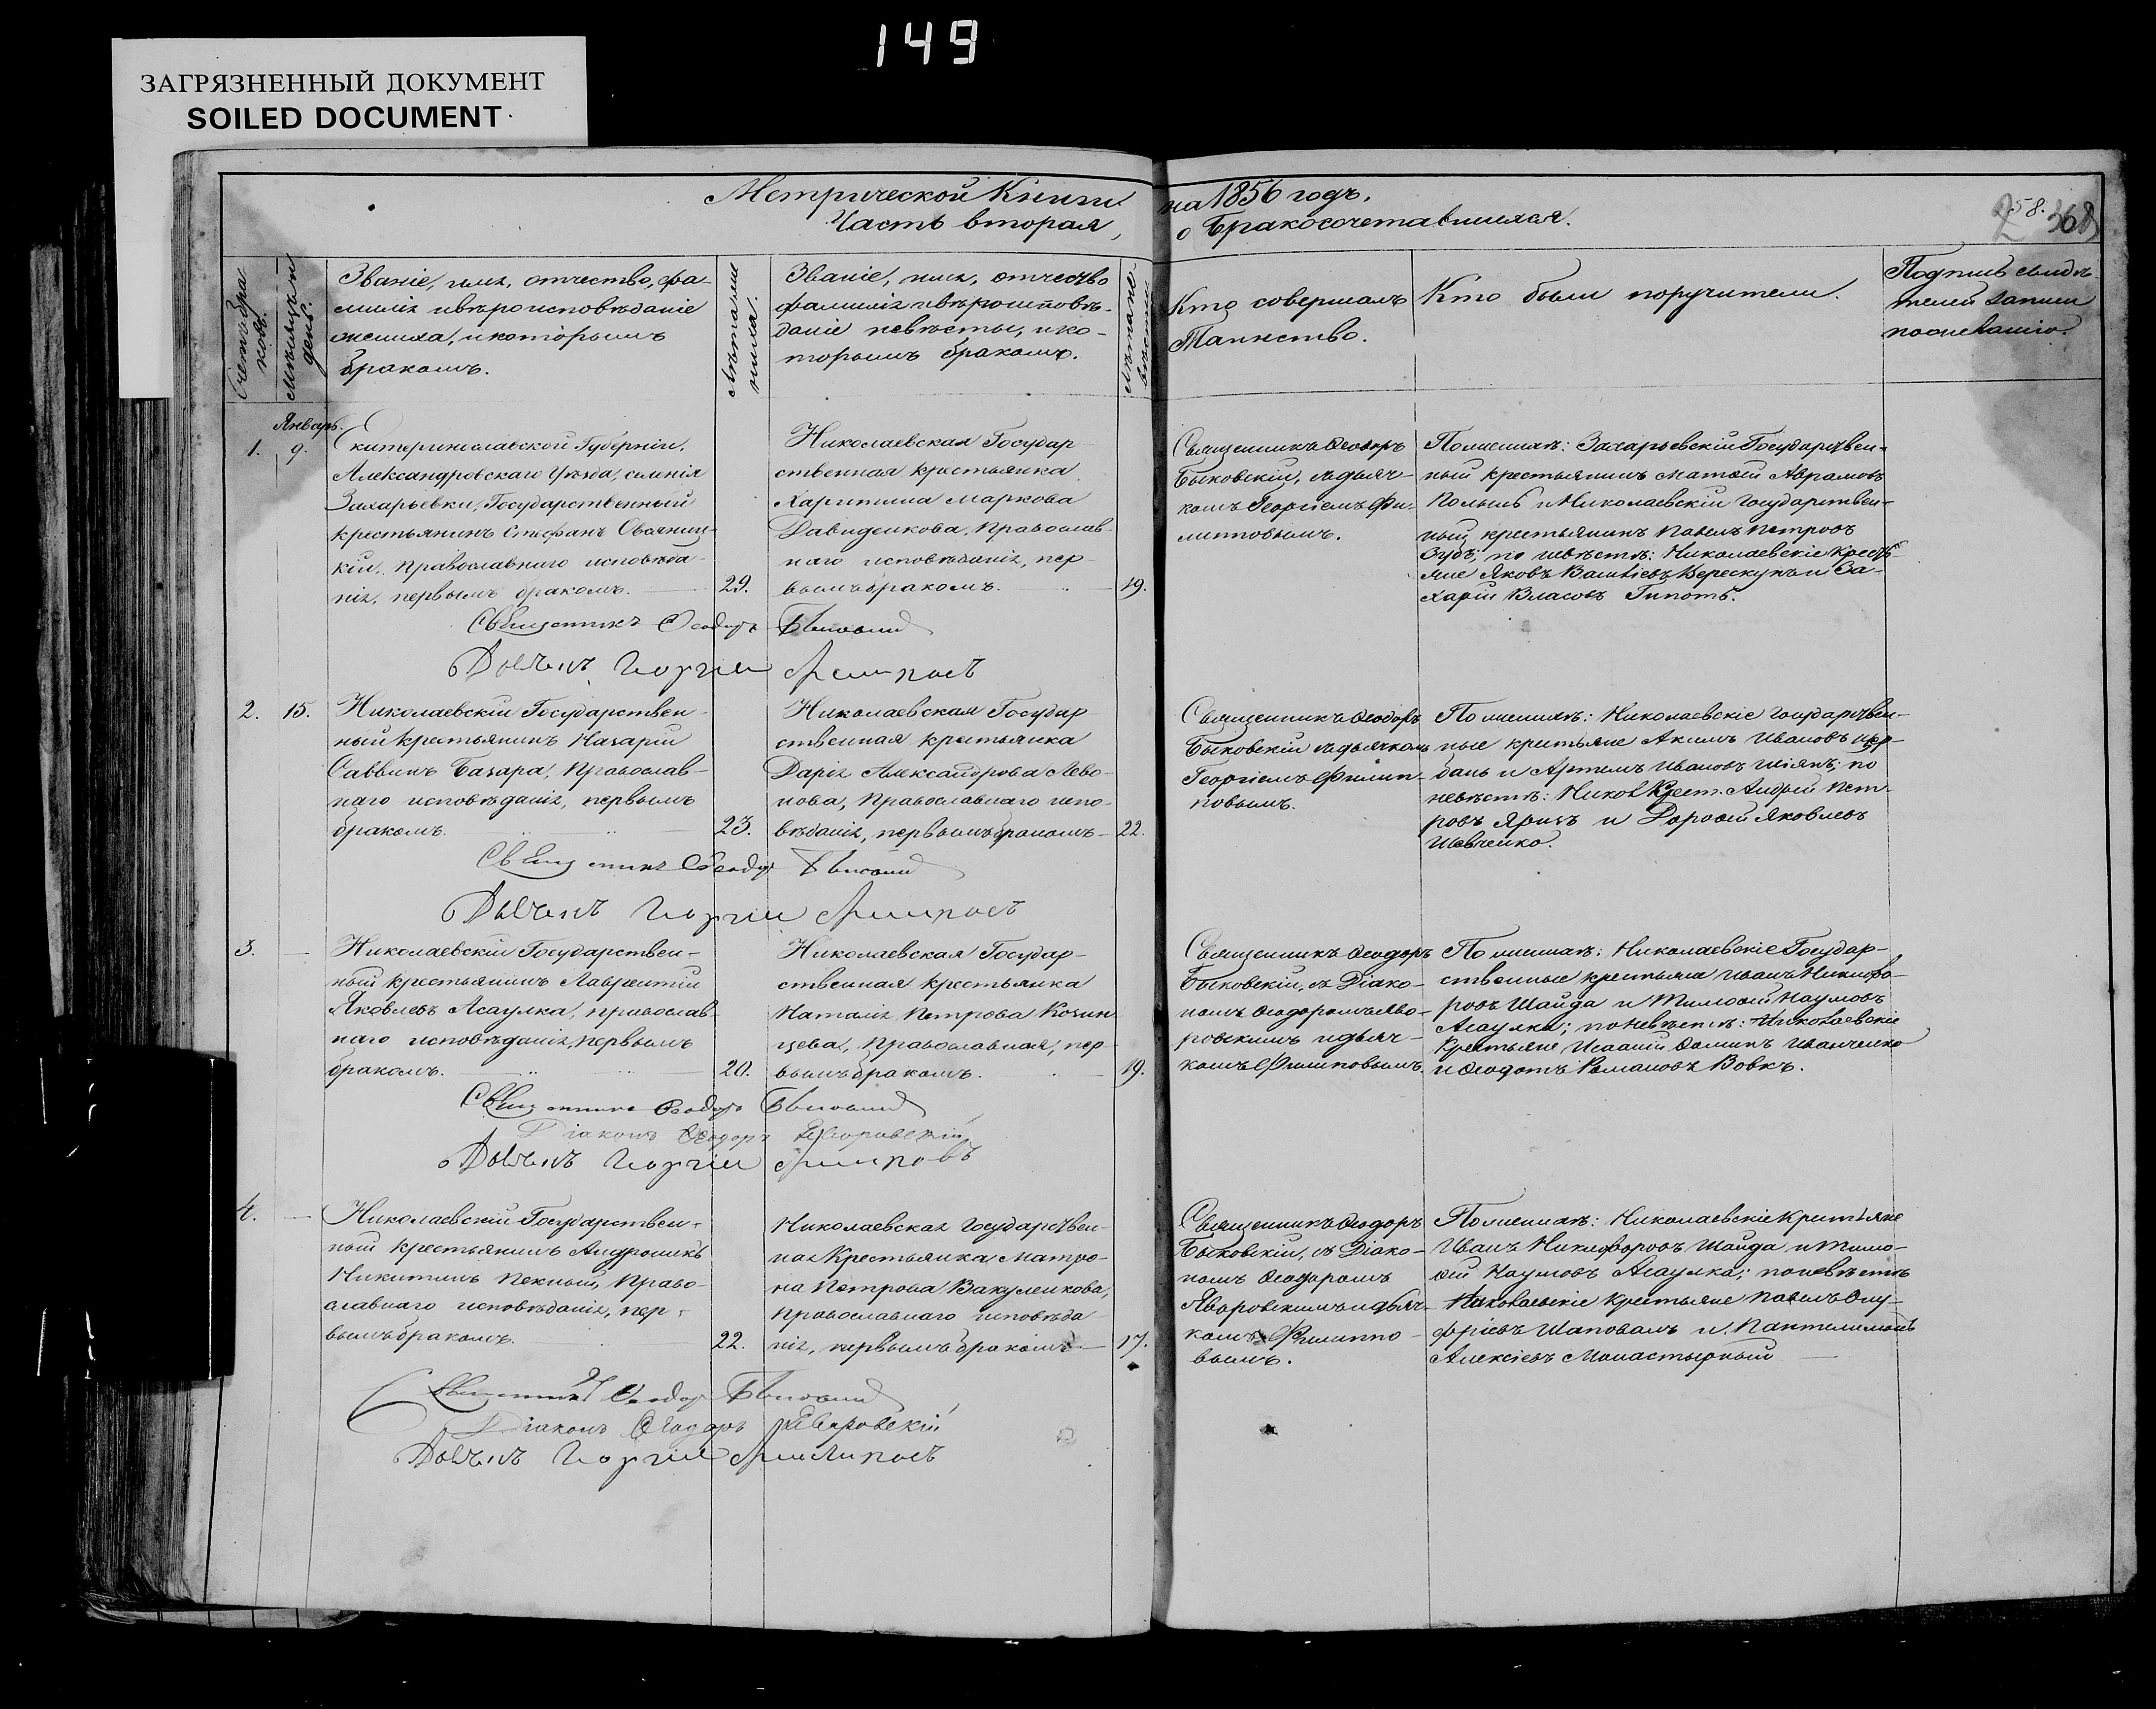 149
ЗАГРЯЗНЕННЫЙ ДОКУМЕНТ
SOILED DOCUMENT
Метрической Книги на 1856 годъ,
Часть вторая, о Бракосочетавшихся.
58.
368
Счетъ бра-
ковъ.
Мѣсяцъ и
день.
Званіе, имя, отчество, фа-
милія и вѣроисповѣданіе
жениха, и которымъ
бракомъ.
Лѣта же-
ниха.
Званіе, имя, отчество
фамилія и вѣроисповѣ-
даніе невѣсты, и ко-
торымъ бракомъ.
Лѣта не-
вѣсты
Кто совершалъ
Таинство.
Кто были поручители.
Подпись свидѣ-
телей записи
по желанію.
Январь.
1. 9.
Екатеринославской Губерніи,
Александровскаго Уѣзда, селенія
Захарьевки, Государственный
крестьянинъ Стефанъ Овсяниц-
кій, Православнаго исповѣда-
нія, первымъ бракомъ. 29.
Николаевская Государ-
ственная крестьянка
Харитина Маркова
Давиденкова, Православ-
наго исповѣданія, пер-
вымъ бракомъ. 19.
Священникъ Ѳеодоръ
Быковскій, съ дьяч-
комъ Георгіемъ Фи-
липповымъ.
По женихѣ: Захарьевскій Государствен-
ный крестьянинъ Матѳей Аврамовъ
и Николаевскій Государствен-
ный крестьянинъ Павелъ Петровъ
Зубъ; по невѣстѣ: Николаевскіе крестья-
не Яковъ и За-
харій Власовъ
Священникъ Ѳеодоръ Быковскій
Дьячекъ Георгій Филиповъ
2. 15.
Николаевскій Государствен-
ный крестьянинъ Назарій
Саввинъ Базара, Православ-
наго исповѣданія, первымъ
бракомъ. 23.
Николаевская Государ-
ственная крестьянка
Дарія Александрова Лево-
нова, Православнаго испо-
вѣданія, первымъ бракомъ 22.
Священникъ Ѳеодоръ
Быковскій съ дьячкомъ
Георгіемъ Филип-
повымъ.
По женихѣ: Николаевскіе Государствен-
ные крестьяне Акимъ Ивановъ
и Артемъ Ивановъ по
невѣстѣ: Никол. Крест. Андрей Пет-
ровъ и Дороѳей Яковлевъ
Шевченко.
Священникъ Ѳеодоръ Быковскій
Дьячекъ Георгій Филиповъ
3. —
Николаевскій Государствен-
ный крестьянинъ Лаврентій
Яковлевъ Асаулка, православ-
наго исповѣданія, первымъ
бракомъ. 20.
Николаевская Государ-
ственная крестьянка
Наталія Петрова Козин-
цева, Православная, пер-
вымъ бракомъ. 19.
Священникъ Ѳеодоръ
Быковскій, съ Діако-
номъ Ѳеодоромъ Яво-
ровскимъ и дьяч-
комъ Филиповымъ
По женихѣ: Николаевскіе Государ-
ственные крестьяне Иванъ Никифо-
ровъ Шайда и Тимоѳей Наумовъ
Асаулка; по невѣстѣ: Николаевскіе
Крестьяне Исаакій Ѳоминъ Иванченко
и Ѳеодотъ Романовъ Вовкъ.
Священникъ Ѳеодоръ Быковскій
Діаконъ Ѳеодоръ Яворовскій
Дьячекъ Георгій Филиповъ
4. —
Николаевскій Государствен-
ный крестьянинъ Андроникъ
Никитинъ Пекный, Право-
славнаго исповѣданія, пер-
вымъ бракомъ. 22.
Николаевская Государствен-
ная Крестьянка Матро-
на Петрова Вакуленкова,
Православнаго исповѣда-
нія, первымъ бракомъ 17.
Священникъ Ѳеодоръ
Быковскій, съ Діако-
номъ Ѳеодоромъ
Яворовскимъ и дьяч-
комъ Филиппо-
вымъ.
По женихѣ: Николаевскіе Крестьяне
Иванъ Никифоровъ Шайда и Тимо-
ѳей Наумовъ Асаулка; по невѣстѣ
Николаевскіе Крестьяне Павелъ Ону-
фріевъ Шаповалъ и Пантелимонъ
Алексіевъ Монастырный
Священникъ Ѳеодоръ Быковскій
Діаконъ Ѳеодоръ Яворовскій
Дьячекъ Георгій Филиповъ